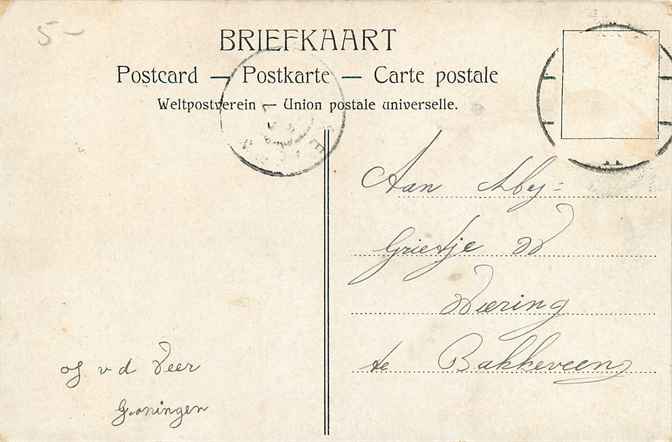 5-
BRIEFKAART
Postcard — Postkarte — Carte postale
Weltpostverein — Union postale universelle.
Aan Mej:
Grietje W
Wiering
te Bakkeveen
v d Veer
Groningen